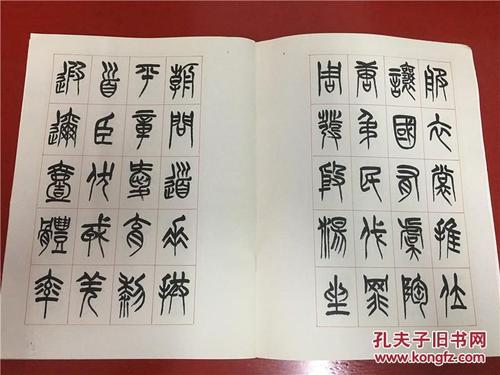 服衣裳推位
讓國有虞陶
唐弔民伐罪
周發殷湯坐
朝問道垂拱
平章愛育黎
首臣伏戎羌
遐邇壹體率
孔夫子旧书网
www.kongfz.com